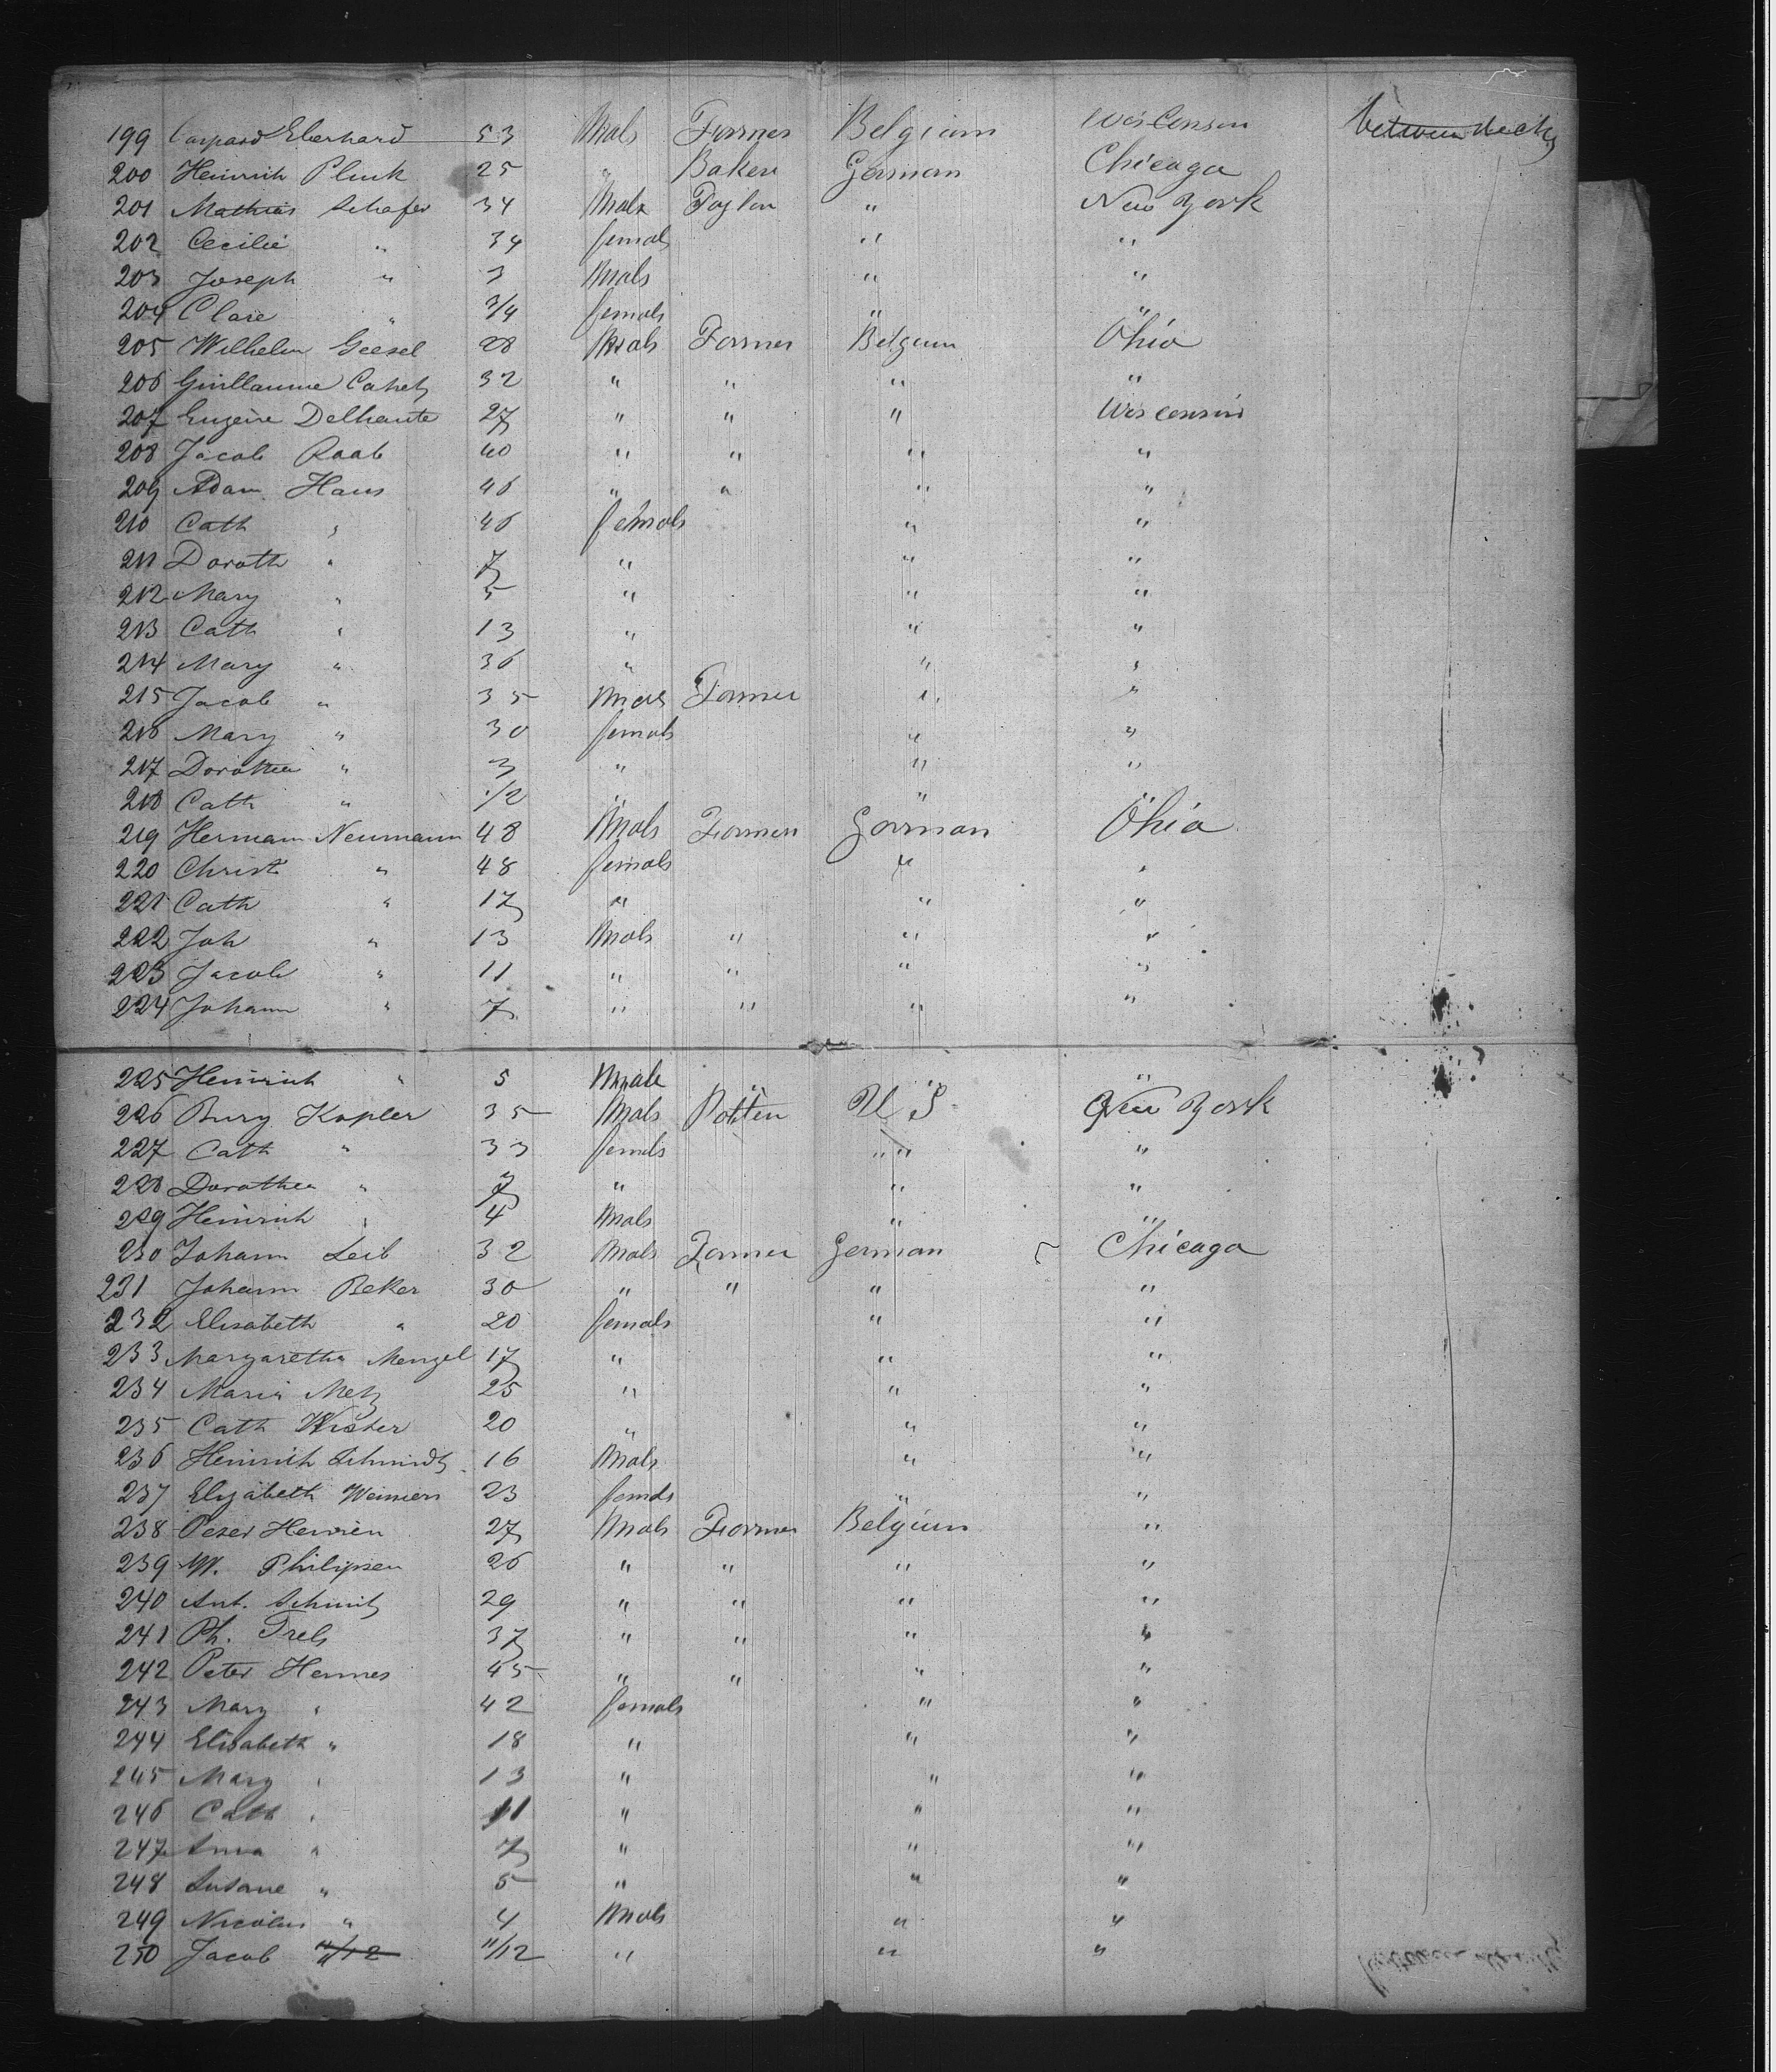 199 Caspard Eberhard 53 Male Farmer Belgium Wisconsin between decks
200 Heinrich Pluck 25 " Baker German Chicago
201 Mathias Schafer 34 Male Taylor " New York
202 Cecilie " 34 female " "
203 Joseph " 3 Male " "
204 Clare " 3/4 female " "
205 Wilhelm Geesel 28 Male Farmer Belgium Ohio
206 Guillaume Cahets 32 " " " "
207 Eugene Delhaute 27 " " " Wisconsin
208 Jacob Raab 40 " " " "
209 Adam Haus 46 " " " "
210 Cath " 46 female " "
211 Doroth " 7 " " "
212 Mary " 5 " " "
213 Cath " 13 " " "
214 Mary " 36 " " "
215 Jacob " 35 Male Farmer " "
216 Mary " 30 female " "
217 Dorothea " 3 " " "
218 Cath " 1/2 " "
219 Hermann Neumann 48 Male Farmer German Ohio
220 Christ " 48 female " "
221 Cath " 17 " " "
222 Joh " 13 Male " " "
223 Jacob " 11 " " " "
224 Johann " 7 " " " "
225 Heinrich " 5 Male "
226 Burg Kopler 35 Male Potter U S New York
227 Cath " 33 female " "
228 Dorothea " 7 " " "
229 Heinrich " 4 Male " "
230 Johann Leib 32 Male Farmer German Chicago
231 Johann Beker 30 " " " "
232 Elisabeth " 20 female " "
233 Margaretha Mengel 17 " " "
234 Maria Metz 25 " " "
235 Cath 20 " " "
236 Heinrich Schmidt 16 Male " "
237 Elizabeth Weimers 23 female " "
238 Peter 27 Male Farmer Belgium "
239 W. Philipsen 26 " " " "
240 Ant. Schmitz 29 " " " "
241 Ph. Trels 37 " " " "
242 Peter Hermes 45 " " " "
243 Mary " 42 female " "
244 Elisabeth " 18 " " "
245 Mary " 13 " " "
246 Cath " 11 " " "
247 Anna " 7 " " "
248 Susane " 5 " " "
249 Nicolas " 4 Male " "
250 Jacob 11/12 11/12 " " "